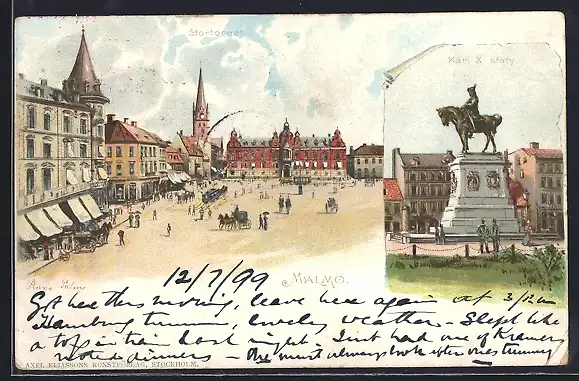 Stortorget
Karl X staty.
Anna Palm
MALMÖ.
12/7/99
Got here this morning, leave here again at 3/12 am
Hamburg lovely weather - Slept like
a top in train last night - Just had one of Kramers
noted dinners - One must always look after ones tummy
AXEL ELIASSONS KONSTFÖRLAG, STOCKHOLM.